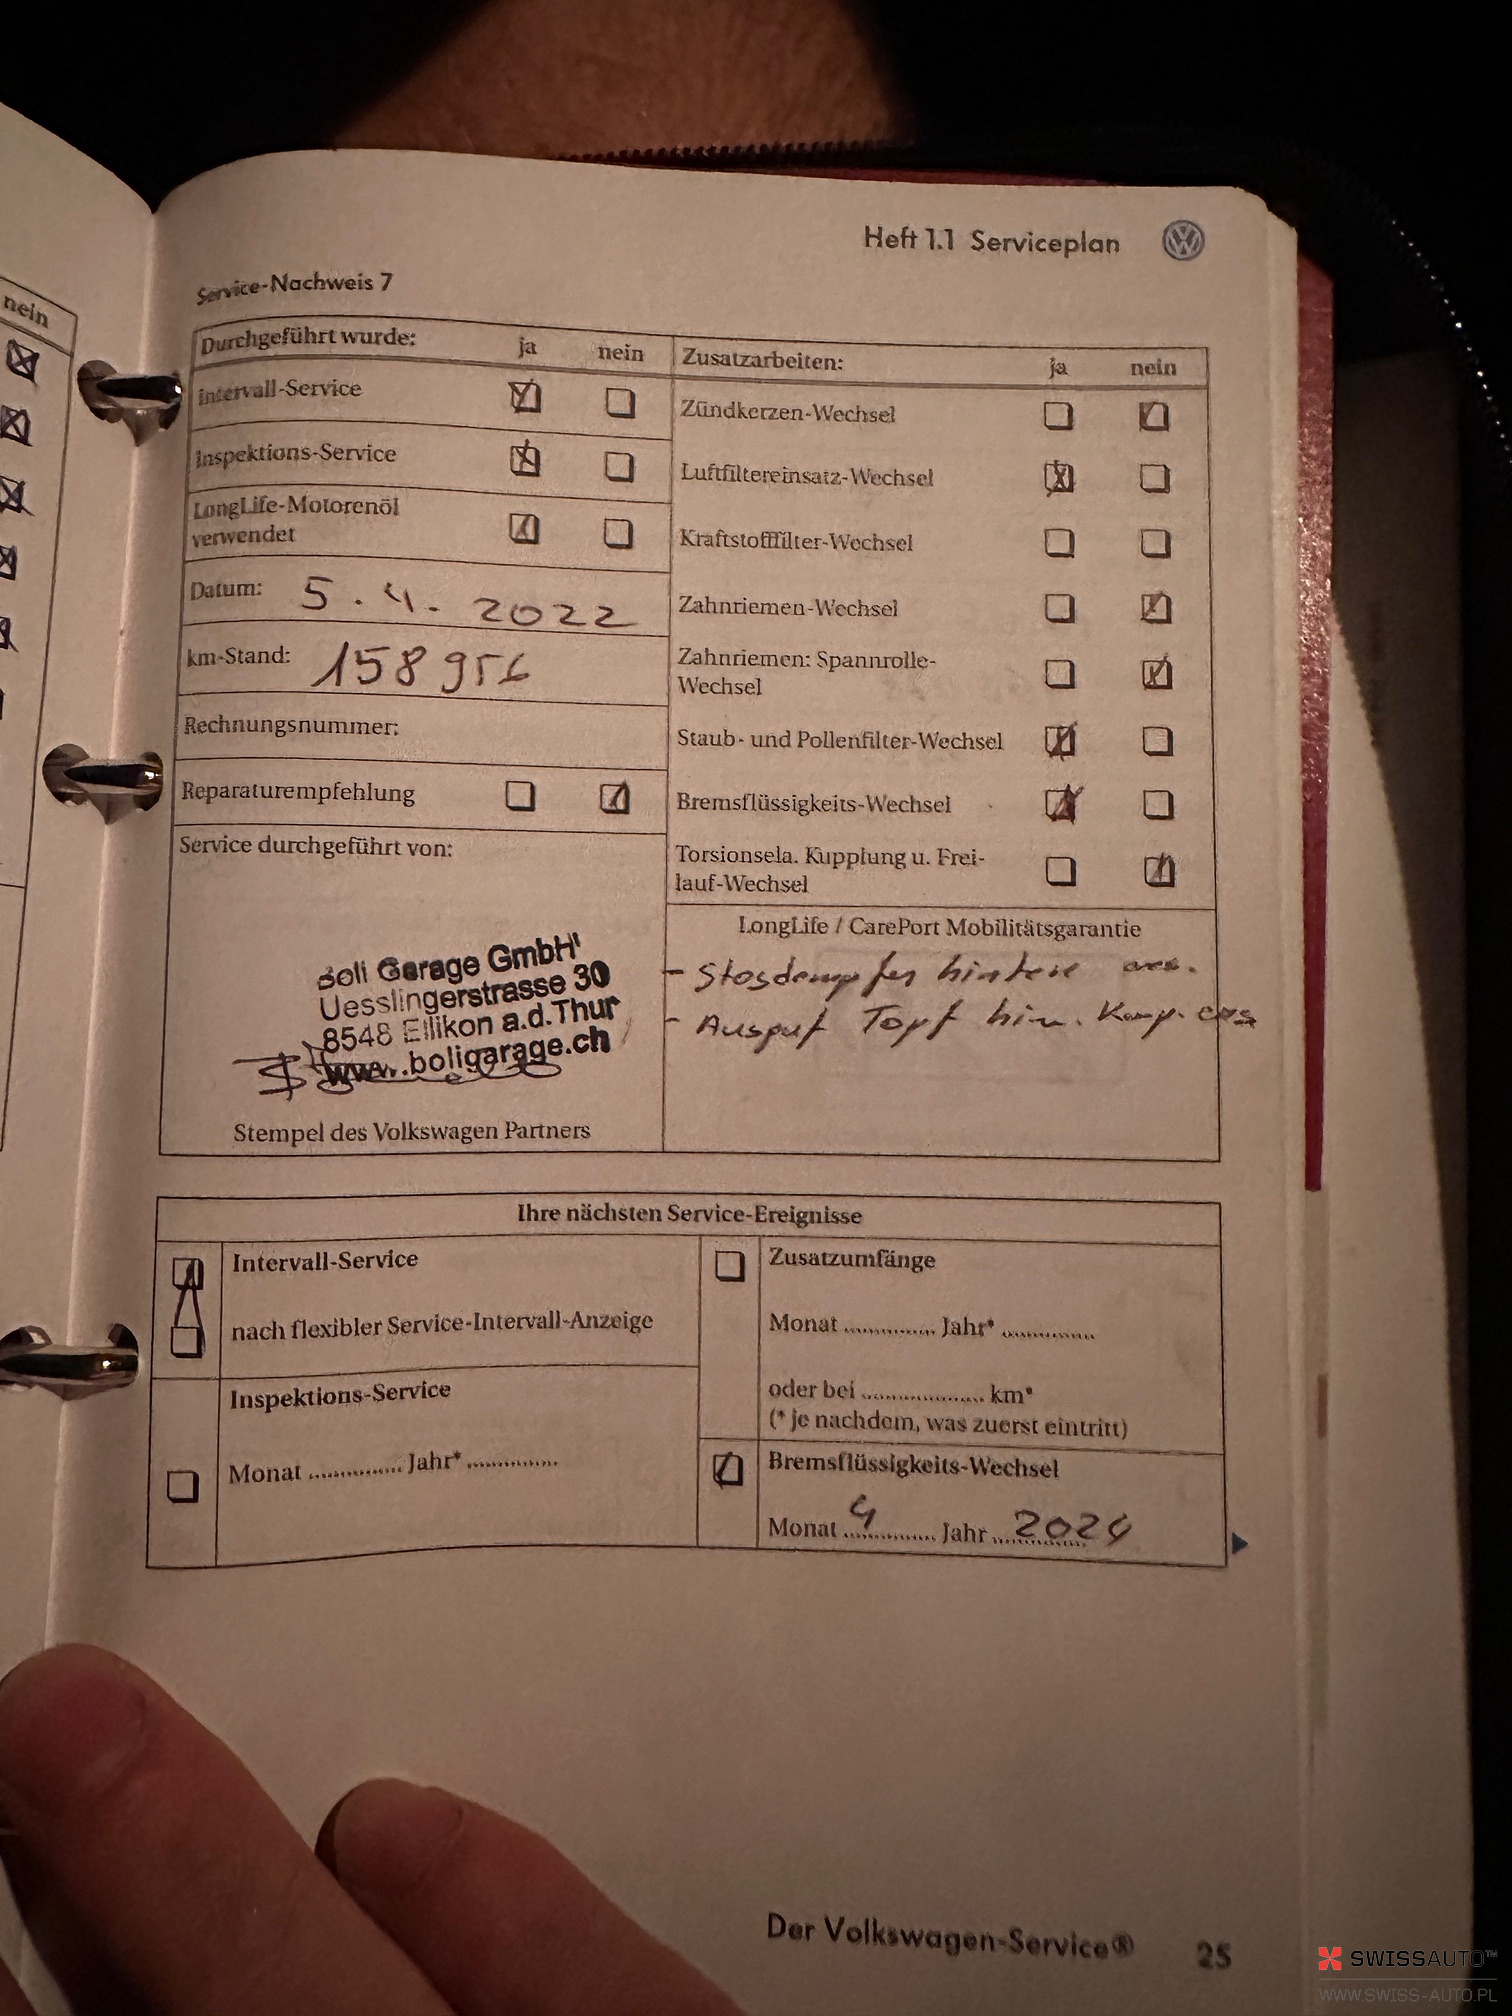 nein
Heft 1.1 Serviceplan
Service-Nachweis 7
Durchgeführt wurde: ja nein
Intervall-Service
Inspektions-Service
LongLife-Motorenöl
verwendet
Datum: 5.4.2022
km-Stand: 158956
Rechnungsnummer:
Reparaturempfehlung
Service durchgeführt von:
Boli Garage GmbH
Uesslingerstrasse 30
8548 Ellikon a.d.Thur
www.boligarage.ch
Stempel des Volkswagen Partners
Zusatzarbeiten: ja nein
Zündkerzen-Wechsel
Luftfiltereinsatz-Wechsel
Kraftstofffilter-Wechsel
Zahnriemen-Wechsel
Zahnriemen: Spannrolle-
Wechsel
Staub- und Pollenfilter-Wechsel
Bremsflüssigkeits-Wechsel
Torsionsela. Kupplung u. Frei-
lauf-Wechsel
LongLife / CarePort Mobilitätsgarantie
- Stosdempfer hinten
- Auspuf Topf hin. Komp.
Ihre nächsten Service-Ereignisse
Intervall-Service
nach flexibler Service-Intervall-Anzeige
Inspektions-Service
Monat .............. Jahr* ..............
Zusatzumfänge
Monat .............. Jahr* ..............
oder bei .................. km*
(* je nachdem, was zuerst eintritt)
Bremsflüssigkeits-Wechsel
Monat 4 Jahr 2024
Der Volkswagen-Service®
25
SWISSAUTO™
WWW.SWISS-AUTO.PL